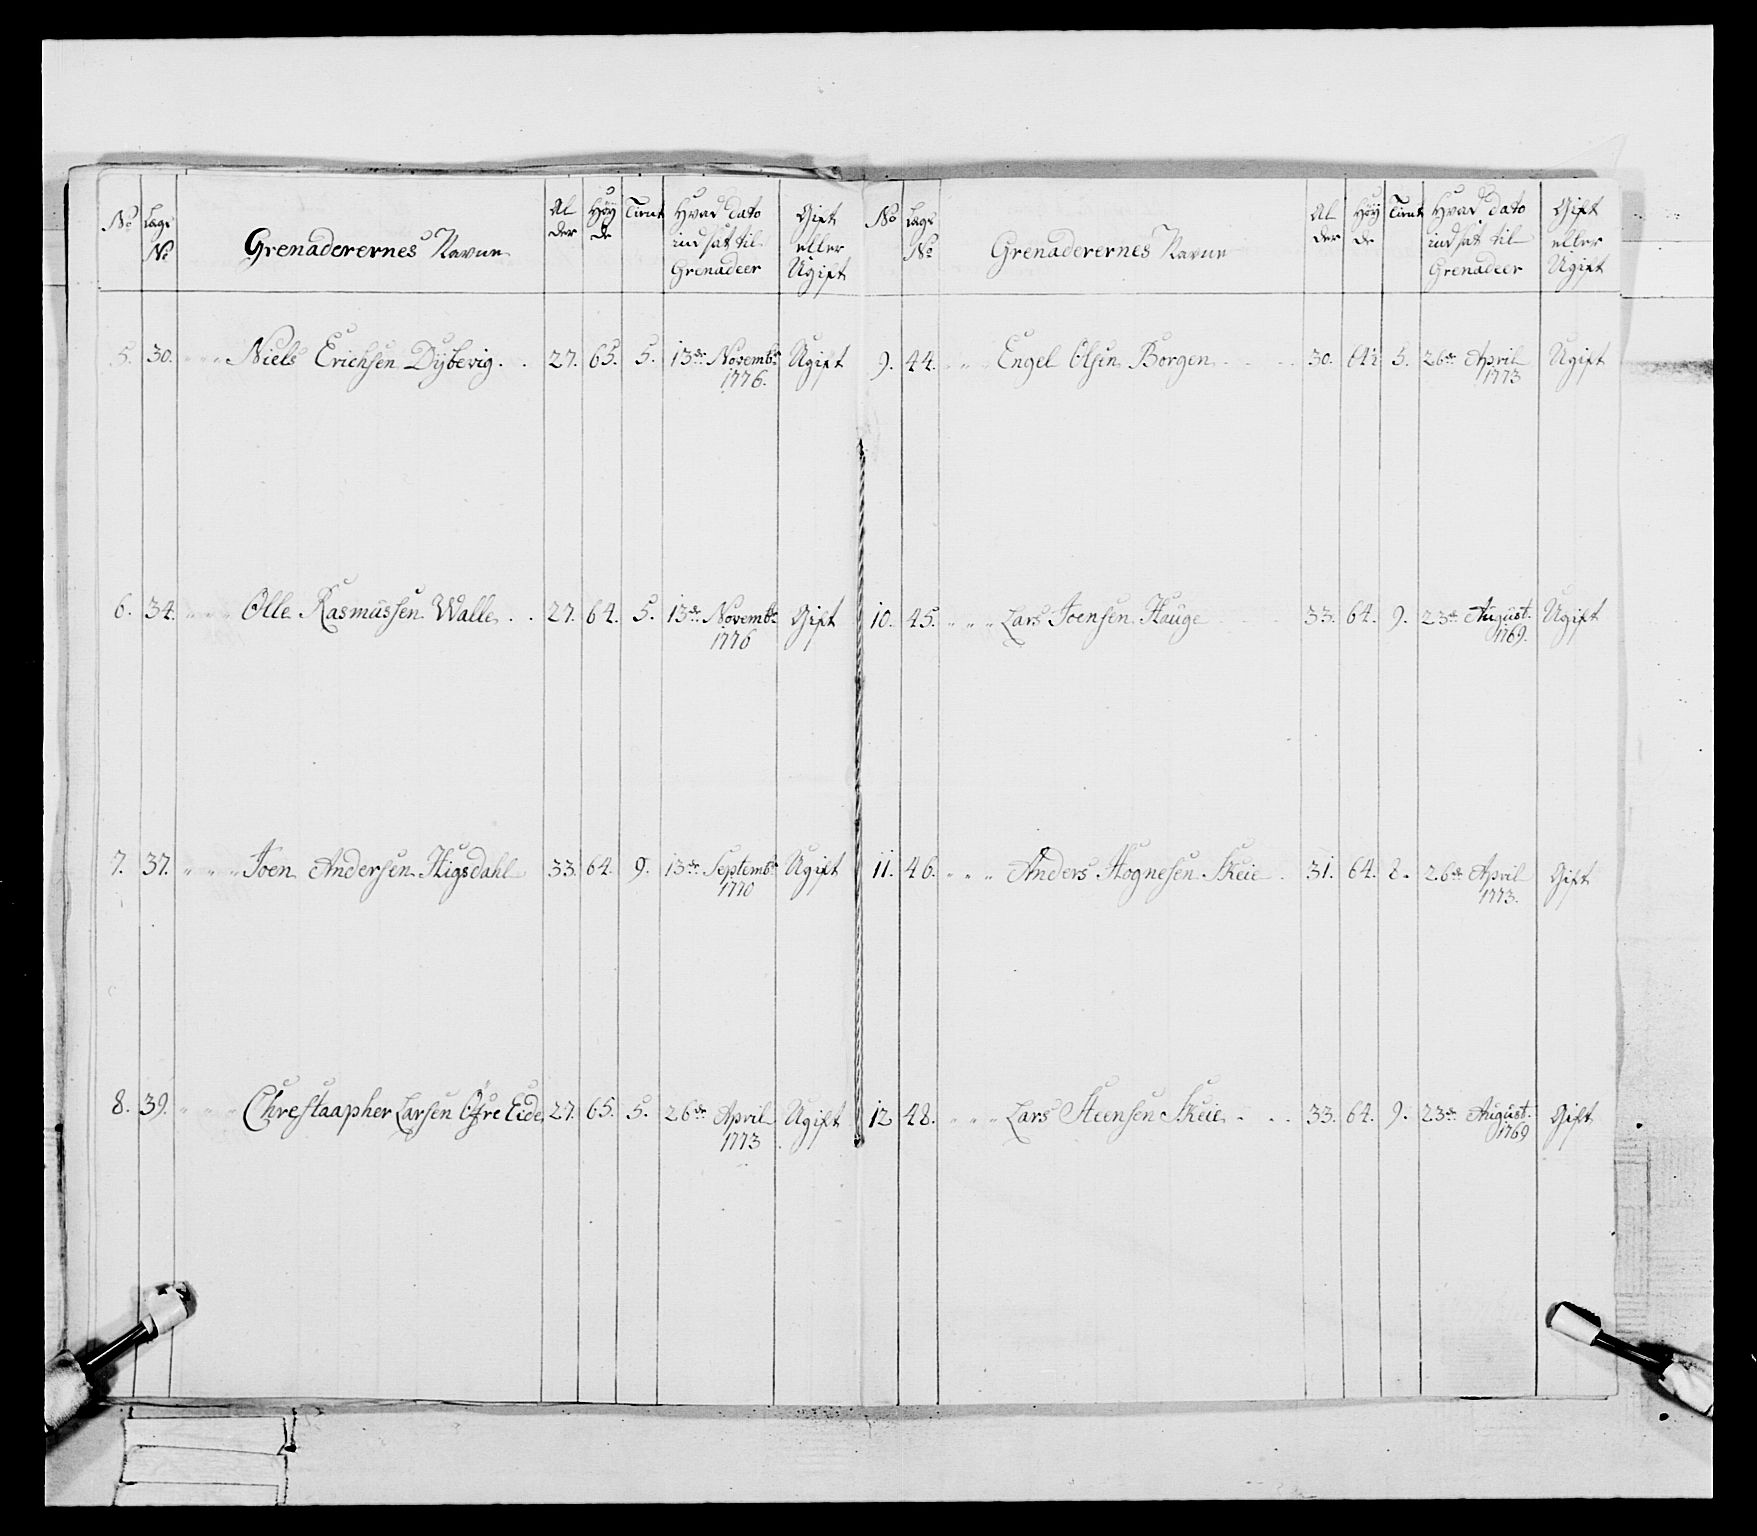 No Lægs No Grenaderernes Navne Alder Høyde Tient Hvad dato indsat til Grenadeer Gift eller Ugift
5. 30. " " " Niels Erichsen Dybevig . . 27. 65. 5. 13de Novembr 1776. Ugift
6. 34. " " " Olle Rasmussen Walle . . 27. 64. 5. 13de Novembr 1776 Gift
7. 37. " " " Joen Andersen Higsdahl 33. 64. 9. 13de Septembr 1770 Ugift
8. 39. " " " Chrestaapher Larsen Øfre Eide 27. 65. 5. 26de April 1773 Ugift
No Lægs No Grenaderernes Navne Alder Høyde Tient Hvad dato indsat til Grenadeer Gift eller Ugift
9. 44. " " " Engel Olsen Borgen . . . . 30. 64½ 5. 26de April 1773 Ugift
10. 45. " " " Lars Joensen Hauge . . . 33. 64. 9. 23de August. 1769. Ugift
11. 46. " " " Anders Hognesen Skeie . 31. 64. 8. 26de April 1773. Gift
12 48. " " " Lars Steensen Skeie . . . 33. 64. 9. 23de August. 1769 Gift